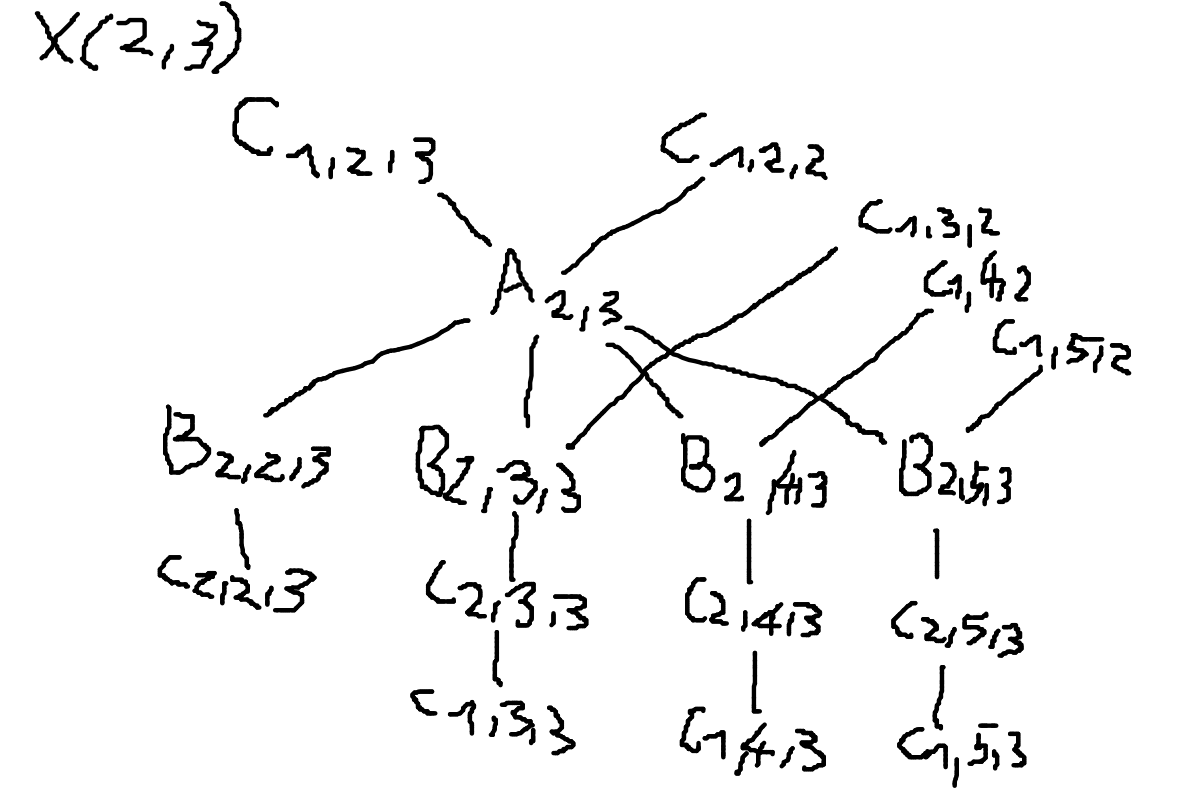 X(2,3)
C1,2,3
C1,2,2
C1,3,2
C1,4,2
A2,3
C1,5,2
B2,2,3 B2,3,3 B2,4,3 B2,5,3
C2,2,3 C2,3,3 C2,4,3 C2,5,3
C1,3,3 C1,4,3 C1,5,3